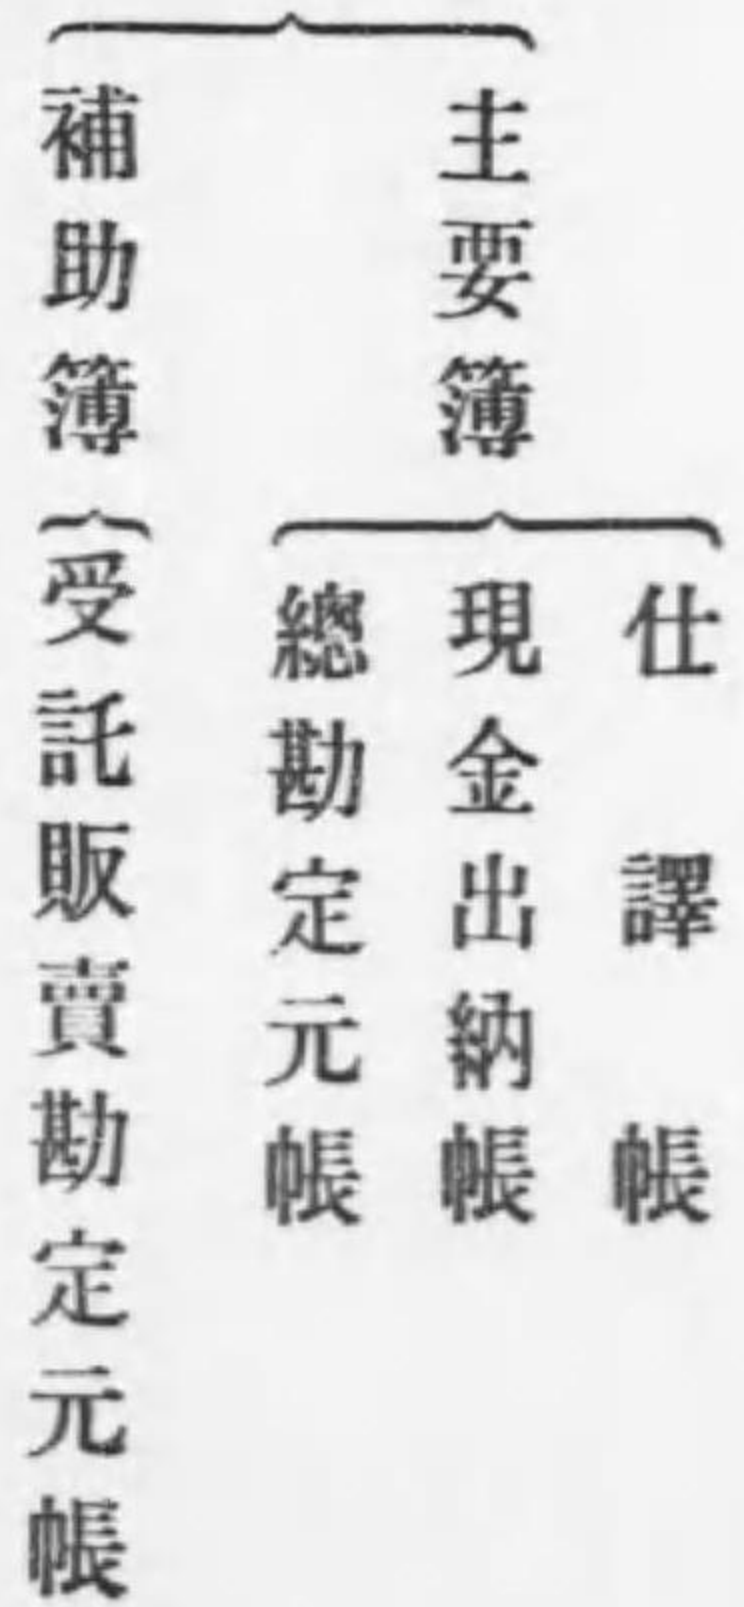 主要簿
仕譯帳
現金出納帳
總勘定元帳
補助簿
受託販賣勘定元帳